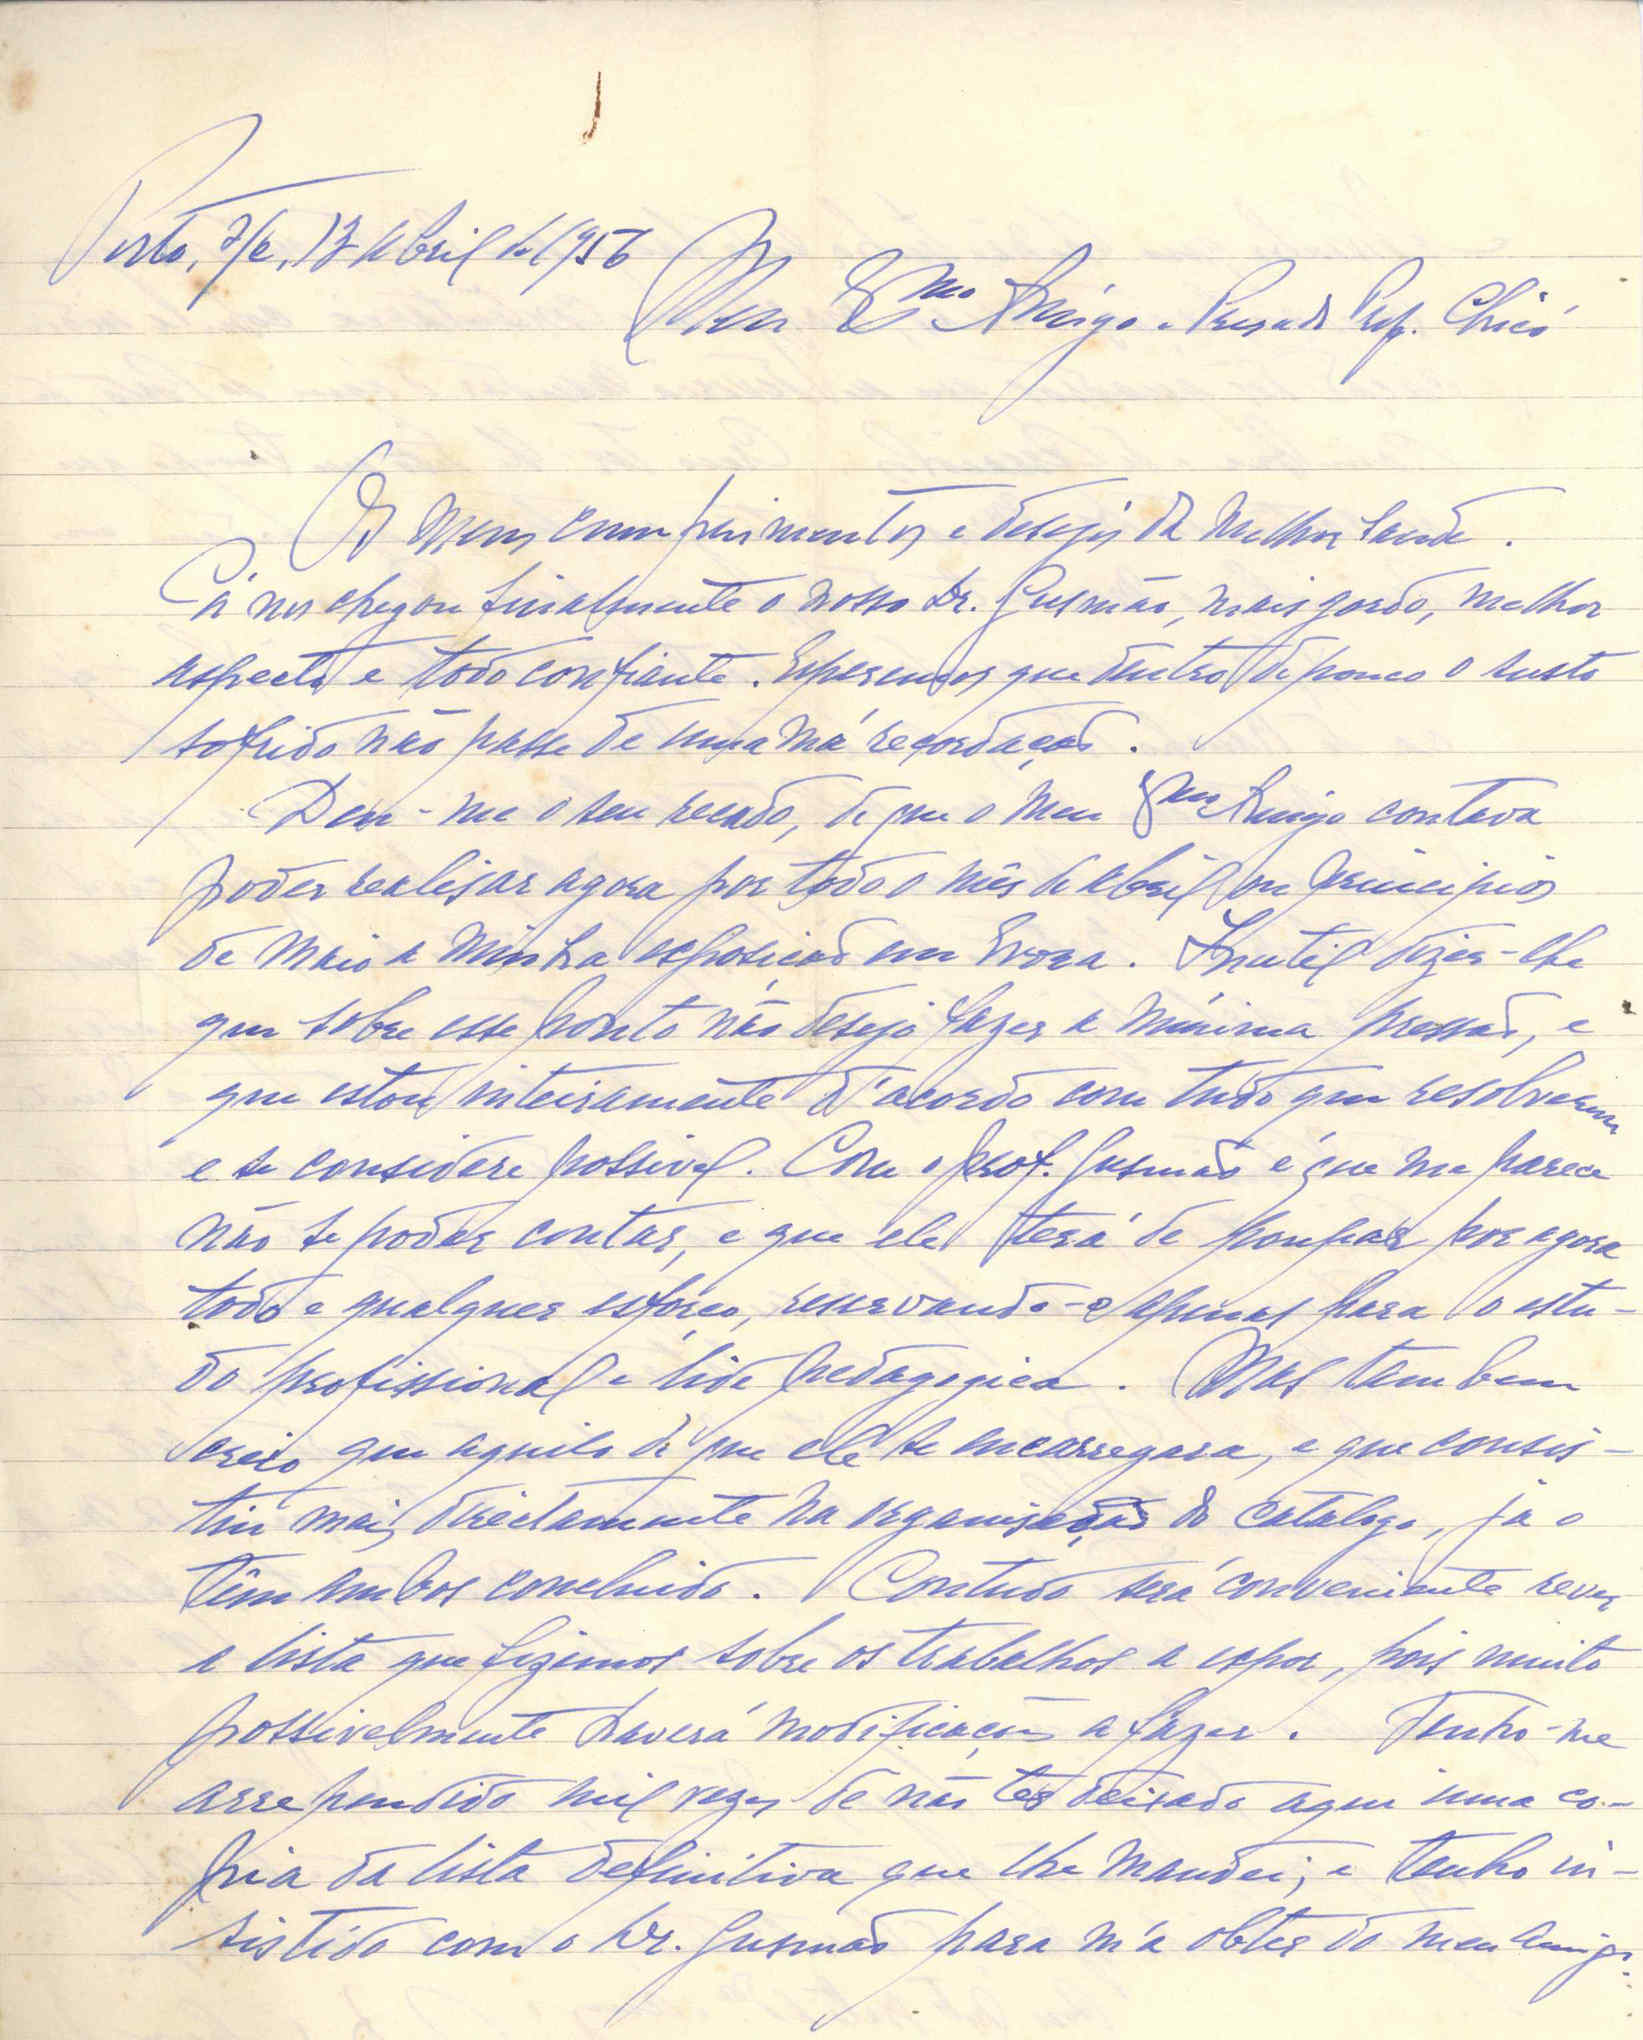 Porto, 17 Abril de 1956
Meu Exmo Amigo e Presado Prof. Chicó
Os meus cumprimentos e desejos da melhor saude.
Cá nos chegou finalmente o nosso Dr. Gusmão, mais gordo, melhor
aspecto e todo confiante. Esperemos que dentro de pouco o susto
sofrido não passe de uma má recordação.
Deu-me o seu recado, de que o meu Exmo Amigo contava
poder realisar agora por todo o mês de abril ou principios
de Maio a minha exposição em Evora. Inutil dizer-lhe
que sobre esse ponto não desejo fazer a minima pressão, e
que estou inteiramente d'acordo com tudo que resolverem
e se considere possivel. Com o Prof. Gusmão é que me parece
não se poder contar, e que ele terá de poupar por agora
todo e qualquer esforço, reservando-o apenas para o estu-
do profissional e lide pedagogica. Mas tambem
creio que aquilo de que ele se encarregara, e que consis-
tiu mais directamente na organisação do catalogo, já o
têm ambos concluido. Contudo será conveniente rever
a lista que fizemos sobre os trabalhos a expor, pois muito
possivelmente haverá modificações a fazer. Tenho-me
arrependido mil vezes de não ter deixado aqui uma co-
pia da lista definitiva que lhe mandei, e tenho in-
sistido com o Dr. Gusmão para m'a obter do meu Amigo.